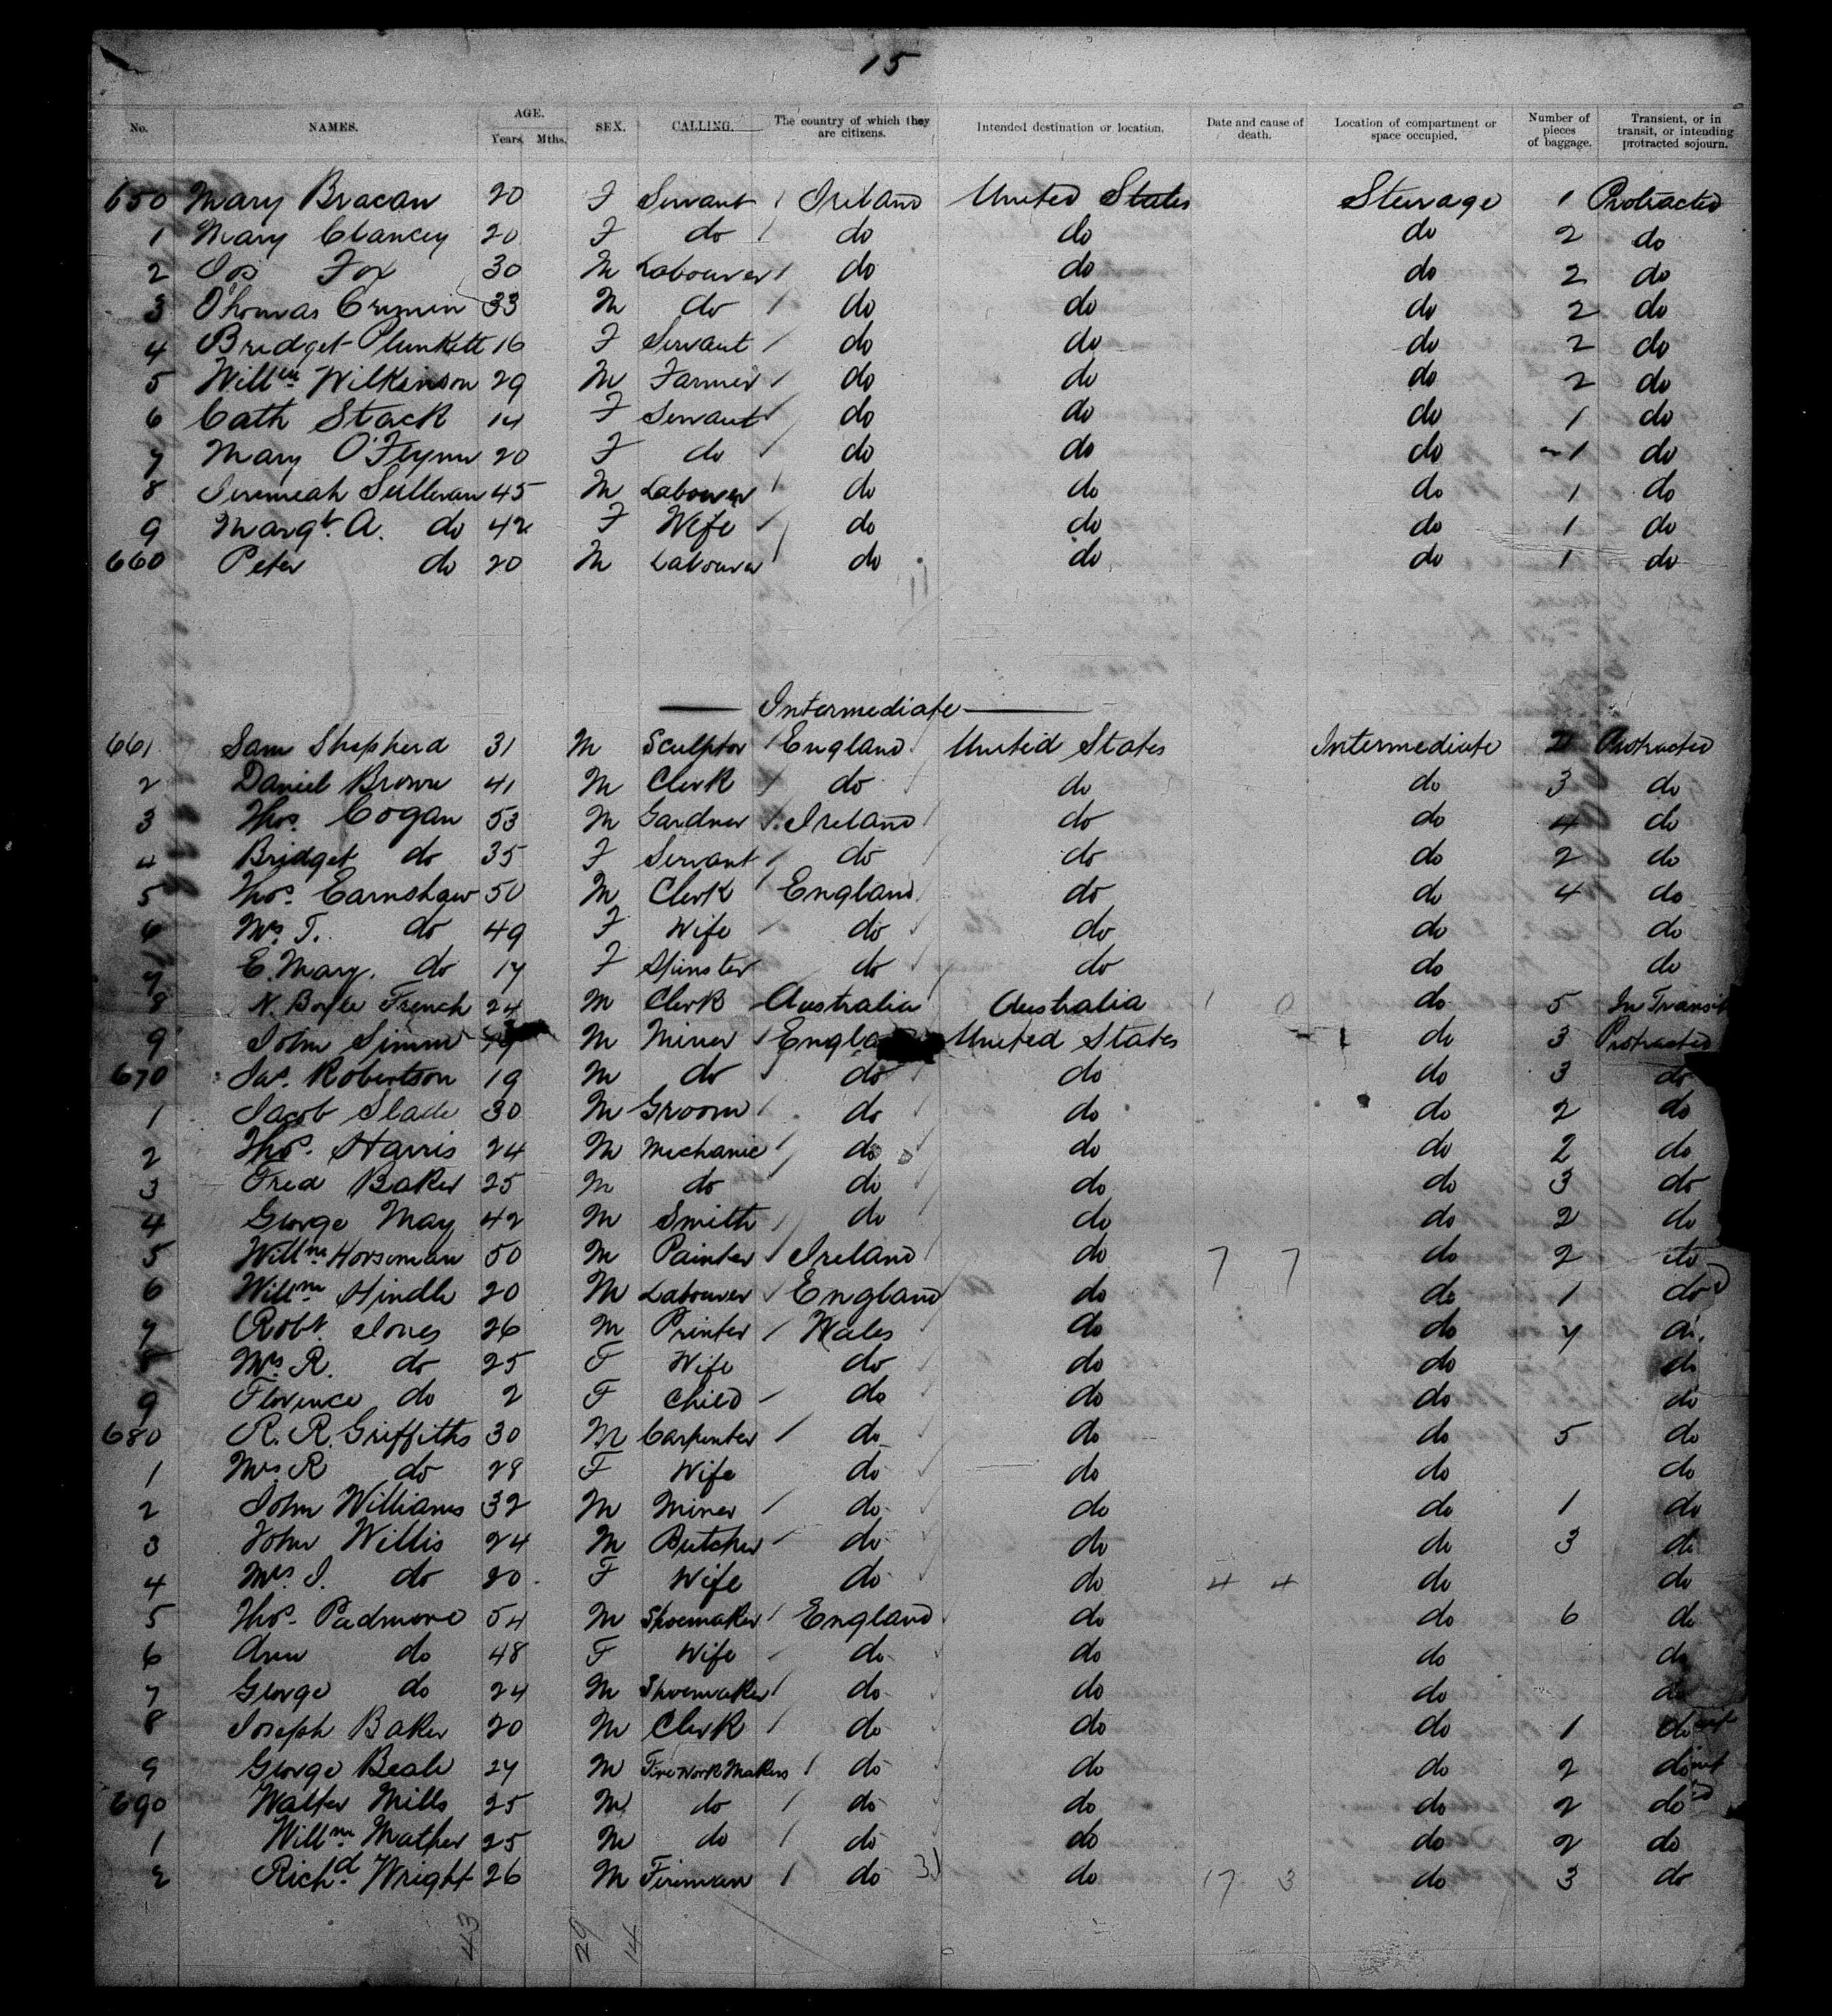 15
No. NAMES. AGE. Years. Mths. SEX. CALLING. The country of which they are citizens. Intended destination or location. Date and cause of death. Location of compartment or space occupied. Number of pieces of baggage. Transient, or in transit, or intending protracted sojourn.
650 Mary Bracan 20 F Servant Ireland United States Steerage 1 Protracted
1 Mary Clancey 20 F do do do do 2 do
2 Jos Fox 30 M Labourer do do do 2 do
3 Thomas Crimin 33 M do do do do 2 do
4 Bridget Plunkett 16 F Servant do do do 2 do
5 Willm Wilkinson 29 M Farmer do do do 2 do
6 Cath Stack 14 F Servant do do do 1 do
7 Mary O'Flynn 20 F do do do do 1 do
8 Jeremiah Sullivan 45 M Labourer do do do 1 do
9 Margt. A. do 42 F Wife do do do 1 do
660 Peter do 20 M Labourer do do do 1 do
Intermediate
661 Sam Shepherd 31 M Sculptor England United States Intermediate 2 Protracted
2 Daniel Brown 41 M Clerk do do do 3 do
3 Thos. Cogan 53 M Gardner Ireland do do 4 do
4 Bridget do 35 F Servant do do do 2 do
5 Thos. Earnshaw 50 M Clerk England do do 4 do
6 Mrs T. do 49 F Wife do do do do
7 E. Mary. do 17 F Spinster do do do do
8 N. Boyle French 24 M Clerk Australia Australia do 5 In Transit
9 John Simm M Miner England United States do 3 Protracted
670 Jas. Robertson 19 M do do do do 3 do
1 Jacob Slade 30 M Groom do do do 2 do
2 Thos. Harris 24 M Mechanic do do do 2 do
3 Fred Baker 25 M do do do do 3 do
4 George May 42 M Smith do do do 2 do
5 Willm Horseman 50 M Painter Ireland do 7 7 do 2 do
6 Willm Hindle 20 M Labourer England do do 1 do
7 Robt. Jones 26 M Printer Wales do do 7 do
8 Mrs R. do 25 F Wife do do do do
9 Florence do 2 F Child do do do do
680 R. R. Griffiths 30 M Carpenter do do do 5 do
1 Mrs R do 28 F Wife do do do do
2 John Williams 32 M Miner do do do 1 do
3 John Willis 24 M Butcher do do do 3 do
4 Mrs. J. do 20 F Wife do do 4 4 do do
5 Thos. Padmore 54 M Shoemaker England do do 6 do
6 Ann do 48 F Wife do do do do
7 George do 24 M Shoemaker do do do do
8 Joseph Baker 20 M Clerk do do do 1 do
9 George Beale 27 M Fire Work Makers do do do 2 do
690 Walter Mills 25 M do do do do 2 do
1 Willm Mather 25 M do do do do 2 do
2 Richd. Wright 26 M Fireman do 31 do 17 3 do 3 do
43 29 14